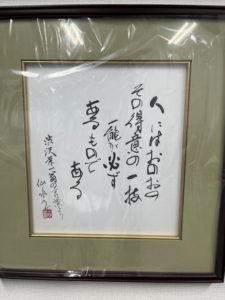 人にはおのおの
その得意の一技
一能が必ず
あるもので
ある
渋沢栄一翁の言葉より